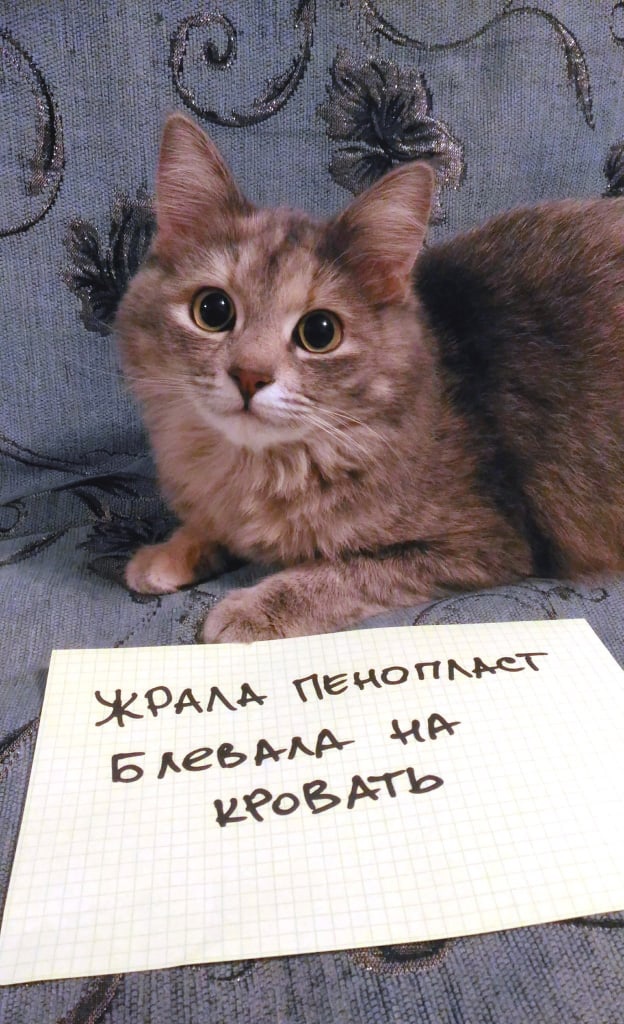 ЖРАЛА ПЕНОПЛАСТ
БЛЕВАЛА НА
КРОВАТЬ